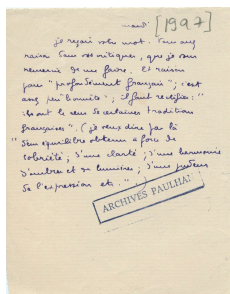 mardi [1927]
je reçois votre mot. Vous avez
raison dans vos critiques, que je vous
remercie de me faire. Et raison
pour "profondément français"; c'est
assez peu "
; il faut rectifier: "
dont le sens de certaines traditions
françaises". (je veux dire par là
"son équilibre obtenu à force de
sobriété; d'une clarté; d'une harmonie
d'ombres et de lumières; d'une pudeur
de l'expression etc."
ARCHIVES PAULHAN